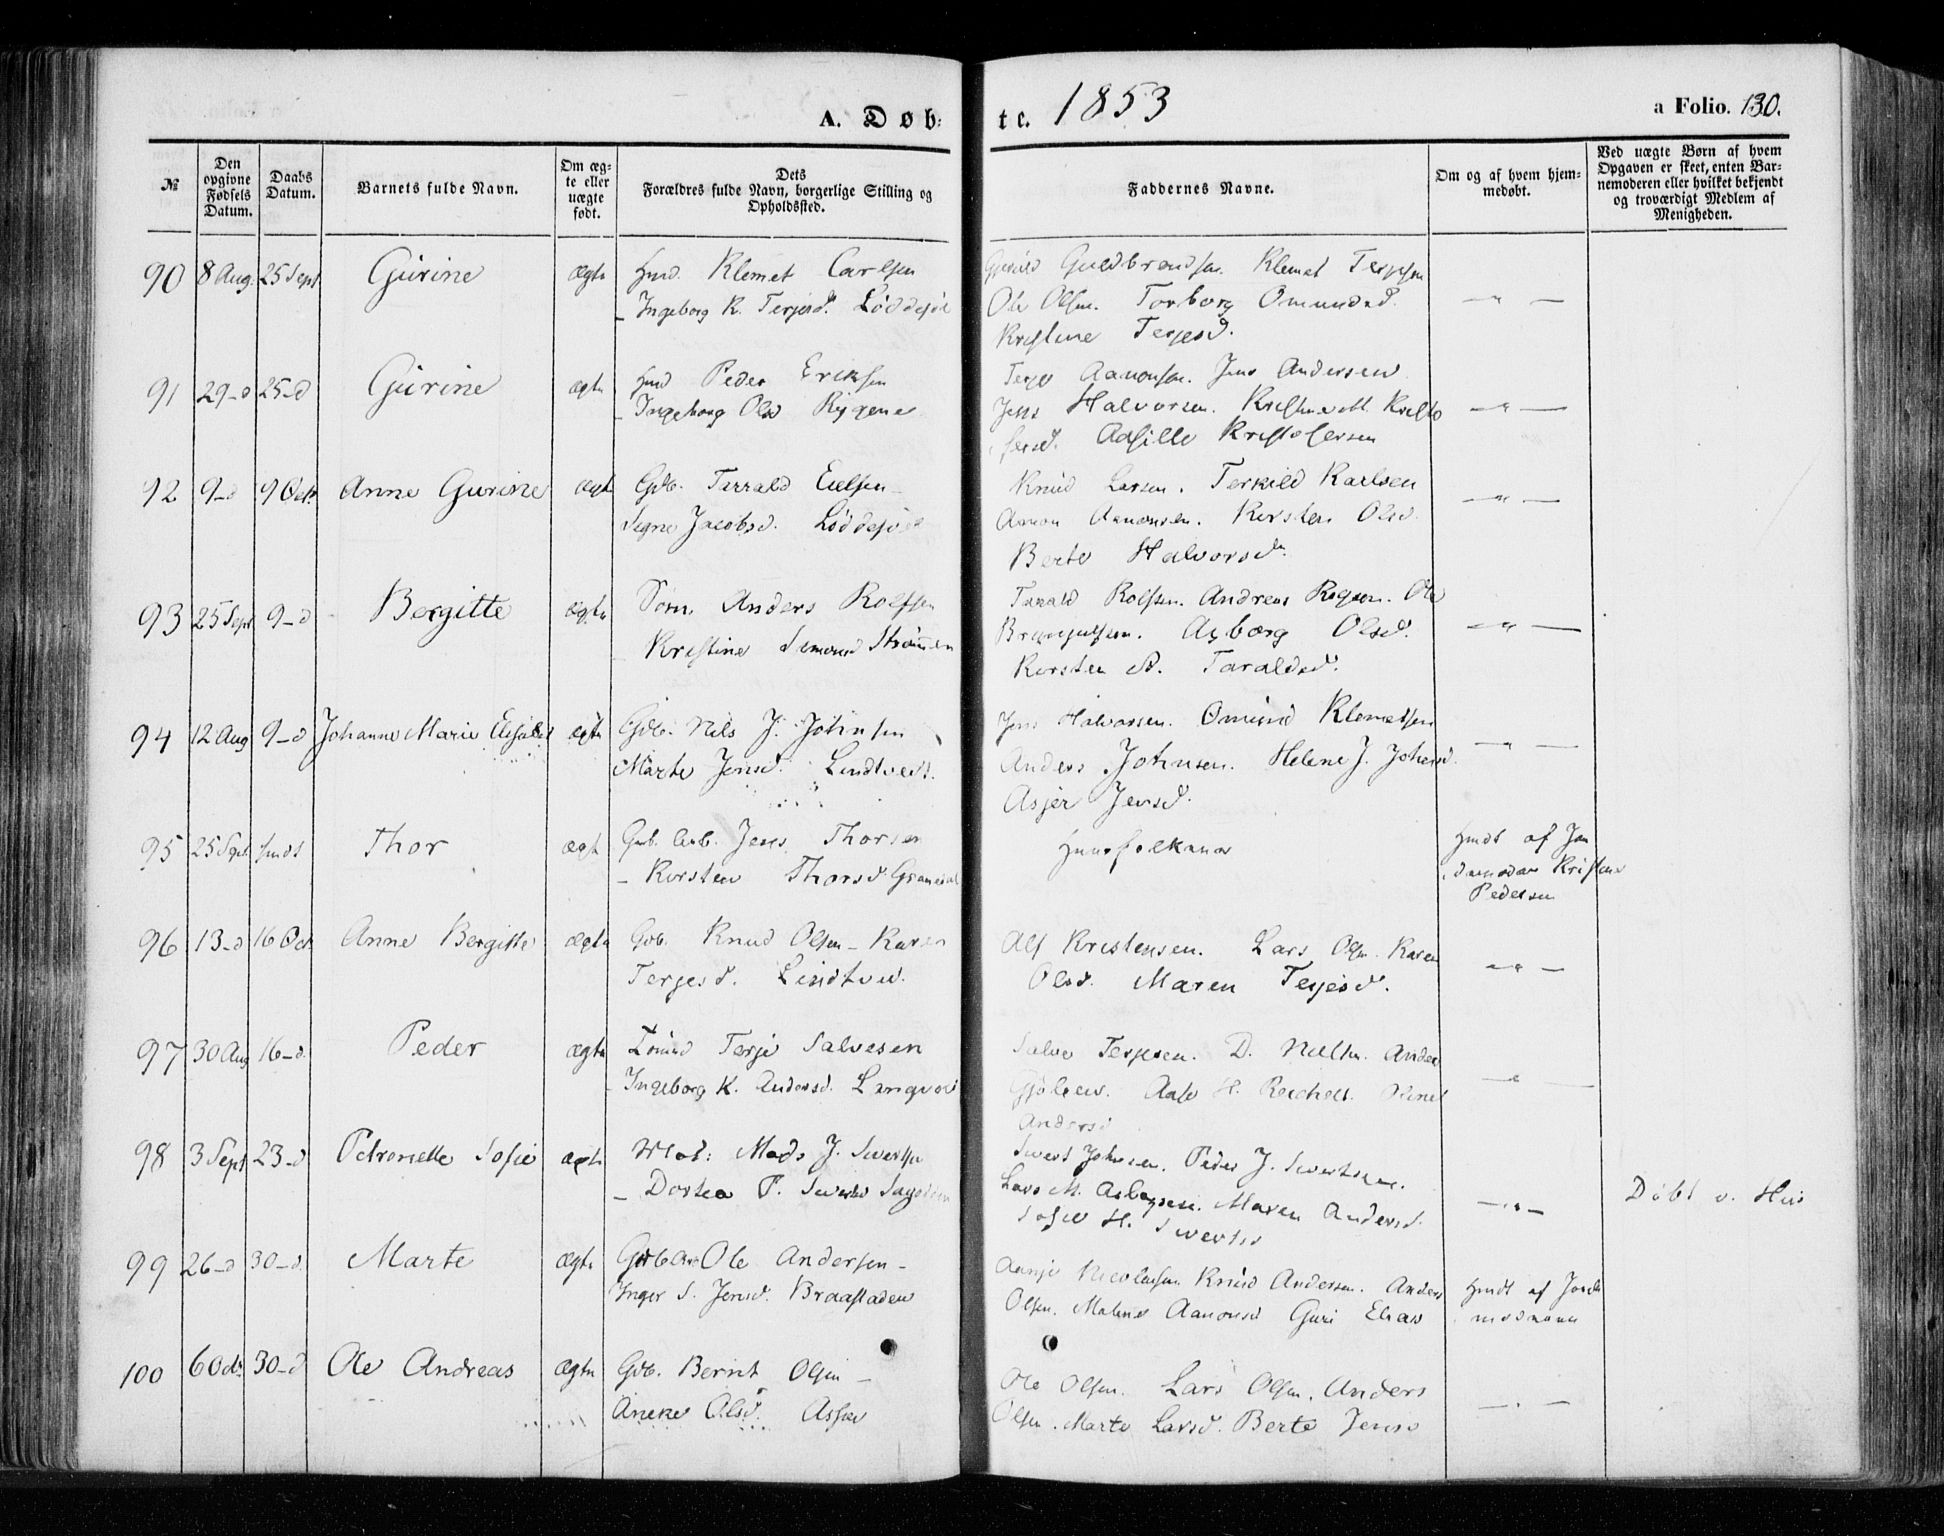 A. Døb-
te. 1853
a Folio. 130.
№
Den opgivne Fødsels Datum.
Daabs Datum.
Barnets fulde Navn.
Om æg-
te eller
uægte
født.
Dets
Forældres fulde Navn, borgerlige Stilling og
Opholdssted.
Faddernes Navne.
Om og af hvem hjem-
medøbt.
Ved uægte Børn af hvem
Opgaven er skeet, enten Bar-
nemoderen eller hvilket bekjendt
og troværdigt Medlem af
Menigheden.
90 8 Aug. 25 Sept Gurine ægte Hmd. Klemet Carlsen
Ingeborg K. Terjesd.
Guldbrandsen. Klemet Terjesen
Ole Olsen. Torborg Omundsd.
Kristine Terjesd.
91 29-d 25-d Gurine ægte Hmd Peder Eriksen
Ingeborg Olsd Rygene
Terje Aanonsen. Jens Andersen
Jens Halvorsen. Kristine M. Kristo
fersd. Kristofersen
92 9-d 9 Oct. Anne Gurine ægte Gdb. Tarrald
Signe Jacobsd.
Knud Larsen. Terkild Karlsen
Aanon Aanonsen. Kirsten Olsd.
Berte Halvorsd.
93 25 Sept 9-d Bergitte ægte Anders Rolfsen
Kristine Simonsd Strømmen
Tarald Rolfsen. Andreas Ole
Asborg Olsd.
Kirsten A. Taraldsd.
94 12 Aug 9-d Johanne Marie ægte Gdb. Nils J. Johnsen
Marte Jensd. Lindtvedt.
Jens Halvorsen. Omund Klemetsen
Anders Johnsen. Helene J. Johnsd.
Asjer Jensd.
95 25 Sept Thor ægte Jens Thorsen
Kirsten Thorsd
Huusfolkene
Hmdt af Jor
demoder Kristine
Pedersen
96 13-d 16 Oct Anne Bergitte ægte Gdb. Knud Olsen - Karen
Terjesd. Lindtved.
Alf Kristensen. Lars Olsen. Karen
Olsd. Maren Terjesd.
97 30 Aug 16-d. Peder ægte Terje Salvesen
Ingeborg K. Andersd.
Salve Terjesen. D. Anders
Aase H. Oline
Andersd
98 3 Sept 23-d Petronelle Sofie ægte Mat: Mads J. Swertsen
Dortea P.
Swert Johnsen. Peder J. Swertsen.
Lars M. Maren Andersd.
Sofie H.
Døbt v. Hiis
99 26-d 30-d. Marte ægte Ole Andersen -
Inger S. Jensd. Braastaden
Nicolaisen Knud Andersen. Anders
Olsen. Malene Aanonsd Guri Elias
Hmdt af Jorde
moderen
100 6 Oct. 30-d Ole Andreas ægte Gdb. Bernt Olsen -
Aneke Olsd. Asker
Ole Olsen. Lars Olsen. Anders
Olsen. Marte Larsd. Berte Jensd